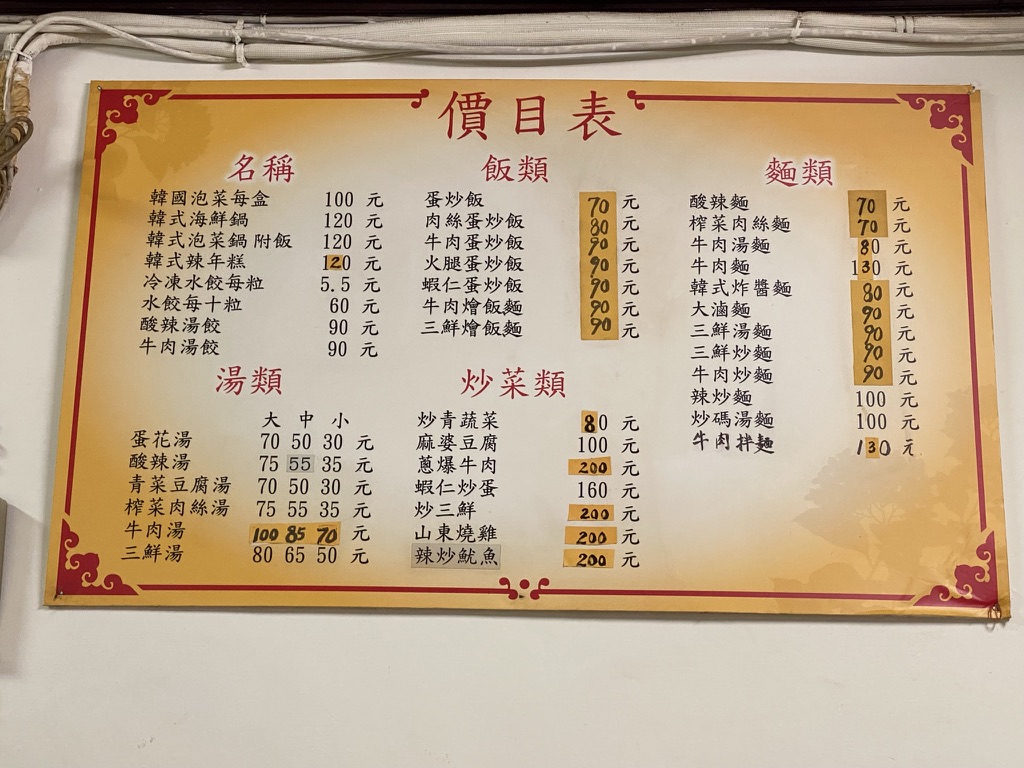 價目表
名稱
韓國泡菜每盒 100 元
韓式海鮮鍋 120 元
韓式泡菜鍋附飯 120 元
韓式辣年糕 120 元
冷凍水餃每粒 5.5 元
水餃每十粒 60 元
酸辣湯餃 90 元
牛肉湯餃 90 元
湯類
大 中 小
蛋花湯 70 50 30 元
酸辣湯 75 55 35 元
青菜豆腐湯 70 50 30 元
榨菜肉絲湯 75 55 35 元
牛肉湯 100 85 70 元
三鮮湯 80 65 50 元
飯類
蛋炒飯 70 元
肉絲蛋炒飯 80 元
牛肉蛋炒飯 90 元
火腿蛋炒飯 90 元
蝦仁蛋炒飯 90 元
牛肉燴飯麵 90 元
三鮮燴飯麵 90 元
炒菜類
炒青蔬菜 80 元
麻婆豆腐 100 元
蔥爆牛肉 200 元
蝦仁炒蛋 160 元
炒三鮮 200 元
山東燒雞 200 元
辣炒魷魚 200 元
麵類
酸辣麵 70 元
榨菜肉絲麵 70 元
牛肉湯麵 80 元
牛肉麵 130 元
韓式炸醬麵 80 元
大滷麵 90 元
三鮮湯麵 90 元
三鮮炒麵 90 元
牛肉炒麵 90 元
辣炒麵 100 元
炒碼湯麵 100 元
牛肉拌麵 130 元